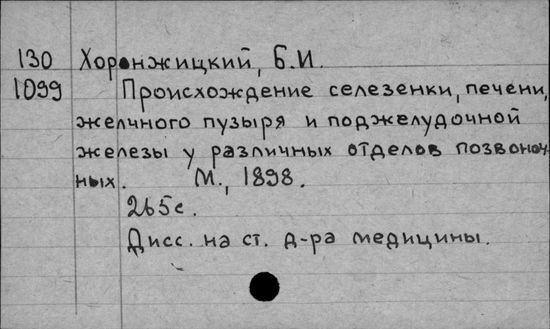 130 Хоронжицкий, Б.И.
1099 Происхождение селезенки, печени,
желчного пузыря и поджелудочной
железы у различных отделов позвоноч
ных. М., 1898.
265с.
Дисс. на ст. д-ра медицины.